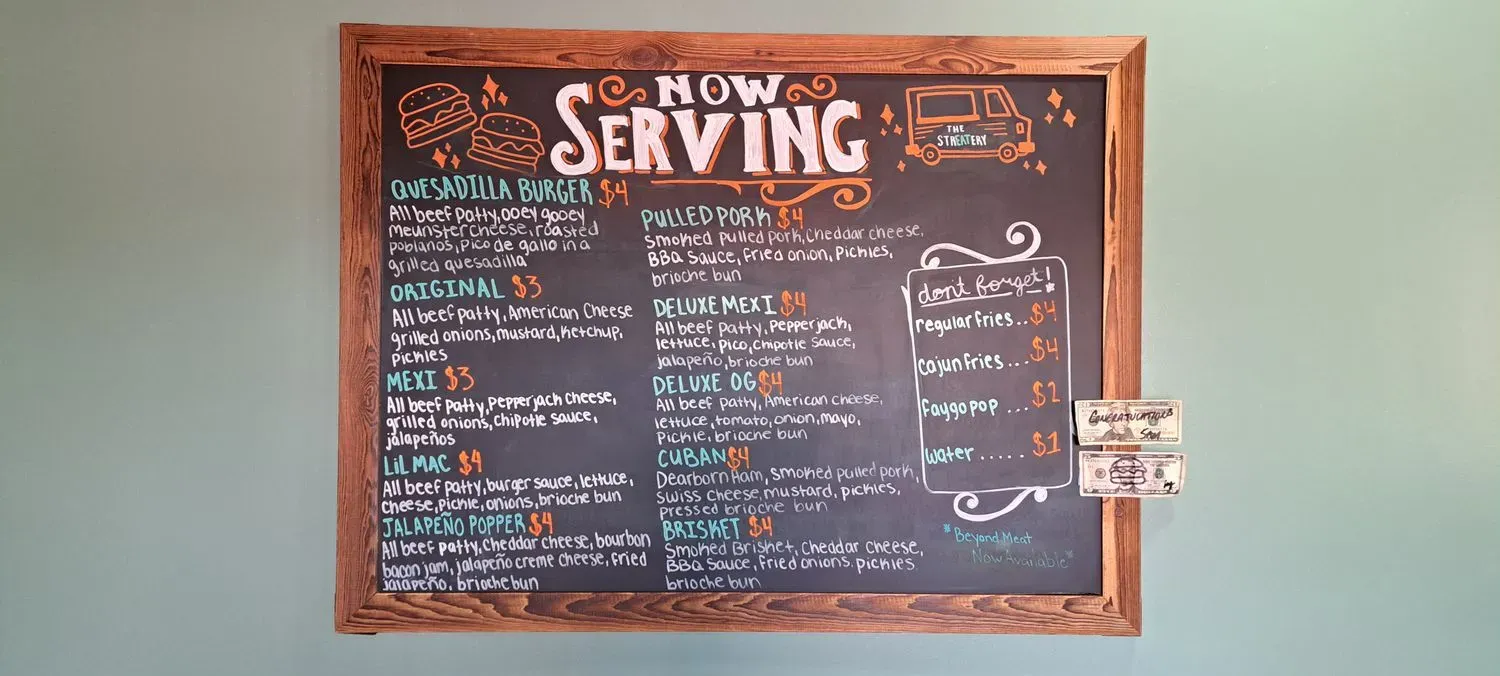 NOW
SERVING
THE
STREATERY
QUESADILLA BURGER $4
All beef patty, ooey gooey
meunster cheese, roasted
poblanos, pico de gallo in a
grilled quesadilla
ORIGINAL $3
All beef patty, American Cheese
grilled onions, mustard, ketchup,
pickles
MEXI $3
All beef patty, pepperjack cheese,
grilled onions, chipotle sauce,
jalapeños
LiL MAC $4
All beef patty, burger sauce, lettuce,
cheese, pickle, onions, brioche bun
JALAPEÑO POPPER $4
All beef patty, cheddar cheese, bourbon
bacon jam, jalapeño creme cheese, fried
jalapeño, brioche bun
PULLED PORK $4
Smoked pulled pork, cheddar cheese,
BBQ sauce, fried onion, pickles,
brioche bun
DELUXE MEXI $4
All beef patty, pepperjack,
lettuce, pico, chipotle sauce,
jalapeño, brioche bun
DELUXE OG $4
All beef patty, American cheese,
lettuce, tomato, onion, mayo,
pickle, brioche bun
CUBAN $4
Dearborn Ham, smoked pulled pork,
swiss cheese, mustard, pickles,
pressed brioche bun
BRISKET $4
Smoked Brisket, cheddar cheese,
BBQ sauce, fried onions, pickles
brioche bun
don't forget!
regular fries.. $4
cajun fries... $4
faygo pop ... $2
water ..... $1
*Beyond Meat
Now Available*
CONGRATULATIONS